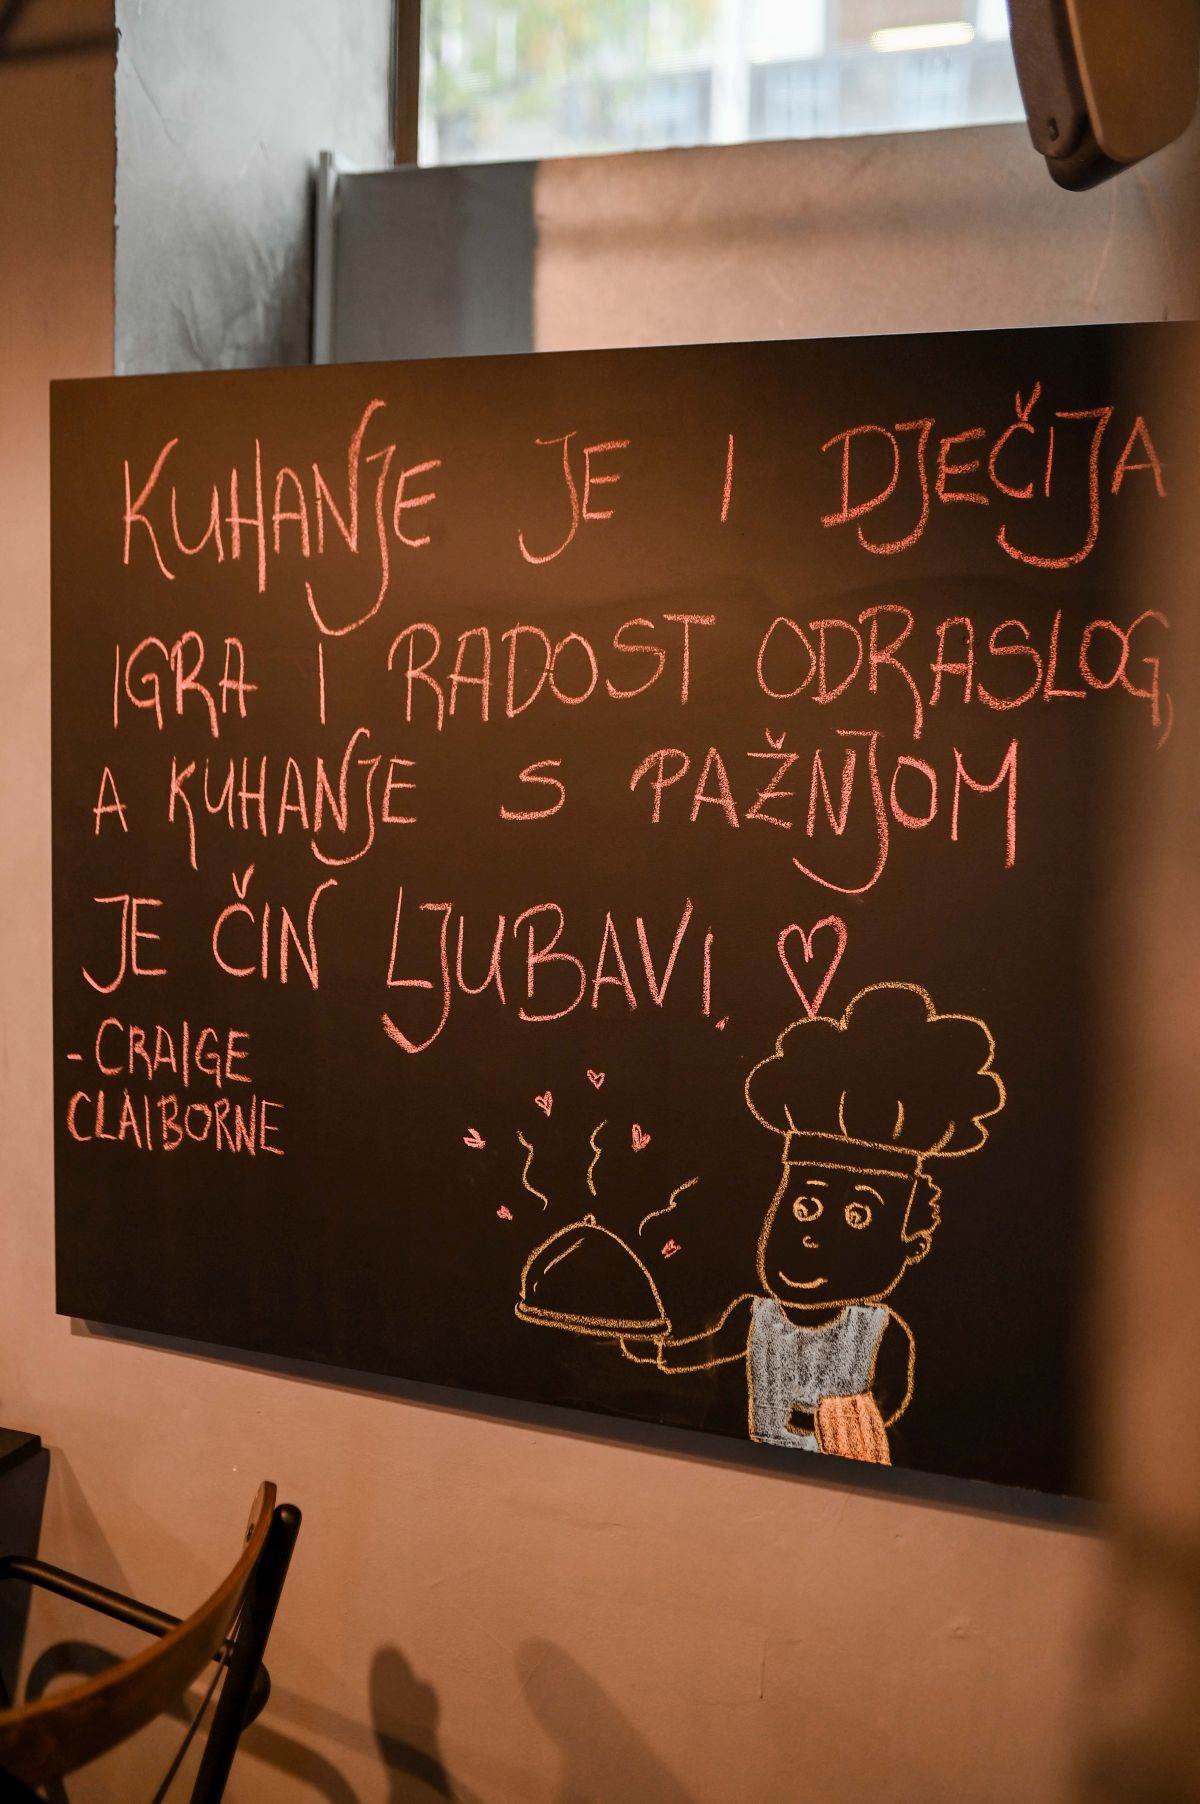 KUHANJE JE I DJEČIJA
IGRA I RADOST ODRASLOG,
A KUHANJE S PAŽNJOM
JE ČIN LJUBAVI. ♡
-CRAIGE
CLAIBORNE